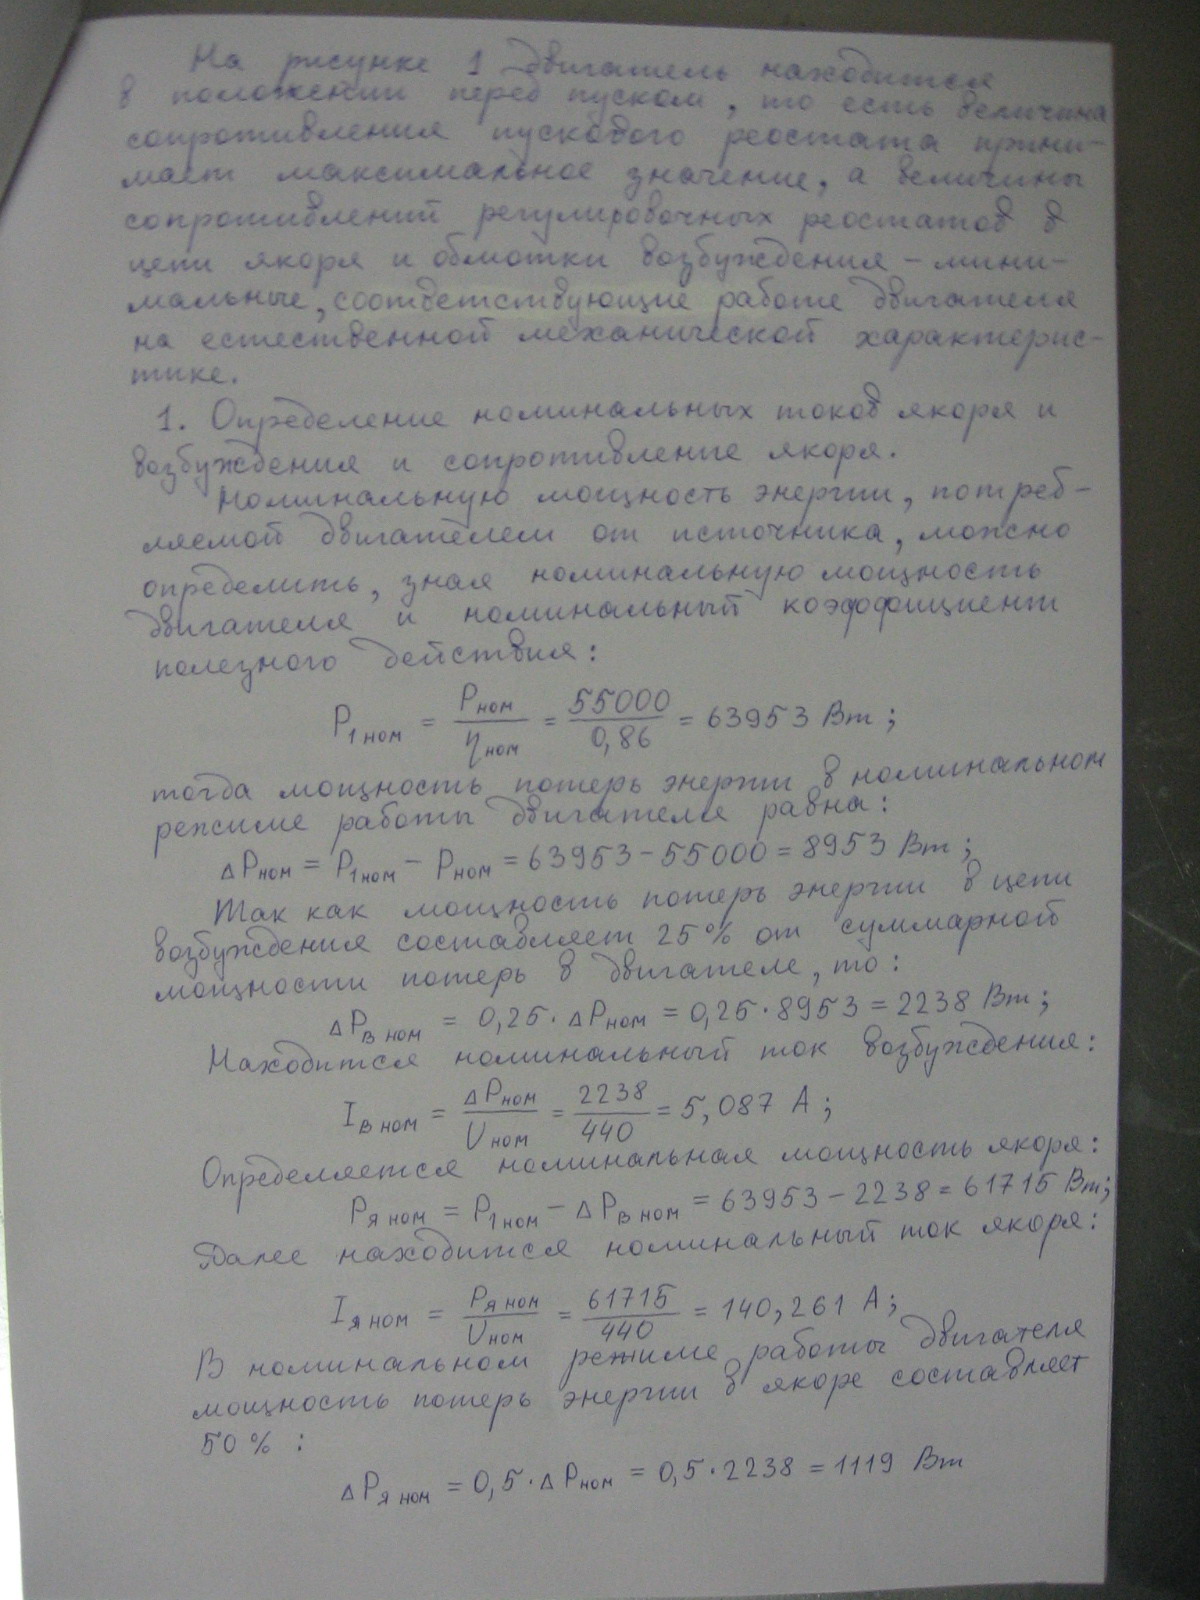 На рисунке 1 двигатель находится
в положении перед пуском, то есть величина
сопротивления пускового реостата прини-
мает максимальное значение, а величины
сопротивлений регулировочных реостатов в
цепи якоря и обмотки возбуждения - мини-
мальные, соответствующие работе двигателя
на естественной механической характерис-
тике.
1. Определение номинальных токов якоря и
возбуждения и сопротивление якоря.
Номинальную мощность энергии, потреб-
ляемой двигателем от источника, можно
определить, зная номинальную мощность
двигателя и номинальный коэффициент
полезного действия:
P1ном = Pном / ηном = 55000 / 0,86 = 63953 Вт;
тогда мощность потерь энергии в номинальном
режиме работы двигателя равна:
ΔPном = P1ном - Pном = 63953 - 55000 = 8953 Вт;
Так как мощность потерь энергии в цепи
возбуждения составляет 25% от суммарной
мощности потерь в двигателе, то:
ΔPв ном = 0,25 · ΔPном = 0,25 · 8953 = 2238 Вт;
Находится номинальный ток возбуждения:
Iв ном = ΔPном / Uном = 2238 / 440 = 5,087 А;
Определяется номинальная мощность якоря:
Pя ном = P1ном - ΔPв ном = 63953 - 2238 = 61715 Вт;
Далее находится номинальный ток якоря:
Iя ном = Pя ном / Uном = 61715 / 440 = 140,261 А;
В номинальном режиме работы двигателя
мощность потерь энергии в якоре составляет
50% :
ΔPя ном = 0,5 · ΔPном = 0,5 · 2238 = 1119 Вт